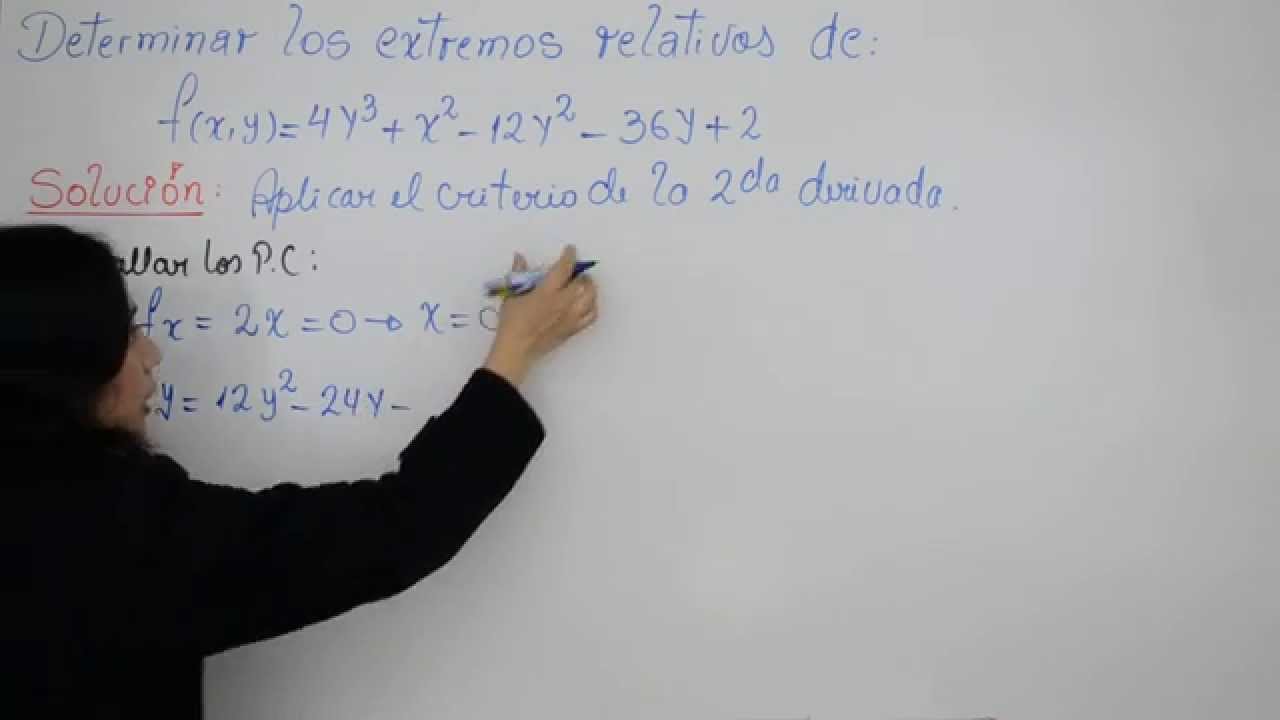 Determinar los extremos relativos de:
f(x,y)=4y³+x²-12y²-36y+2
Solución: Aplicar el criterio de la 2da derivada.
los P.C:
fx = 2x = 0 → x = 0
y = 12y² - 24y -